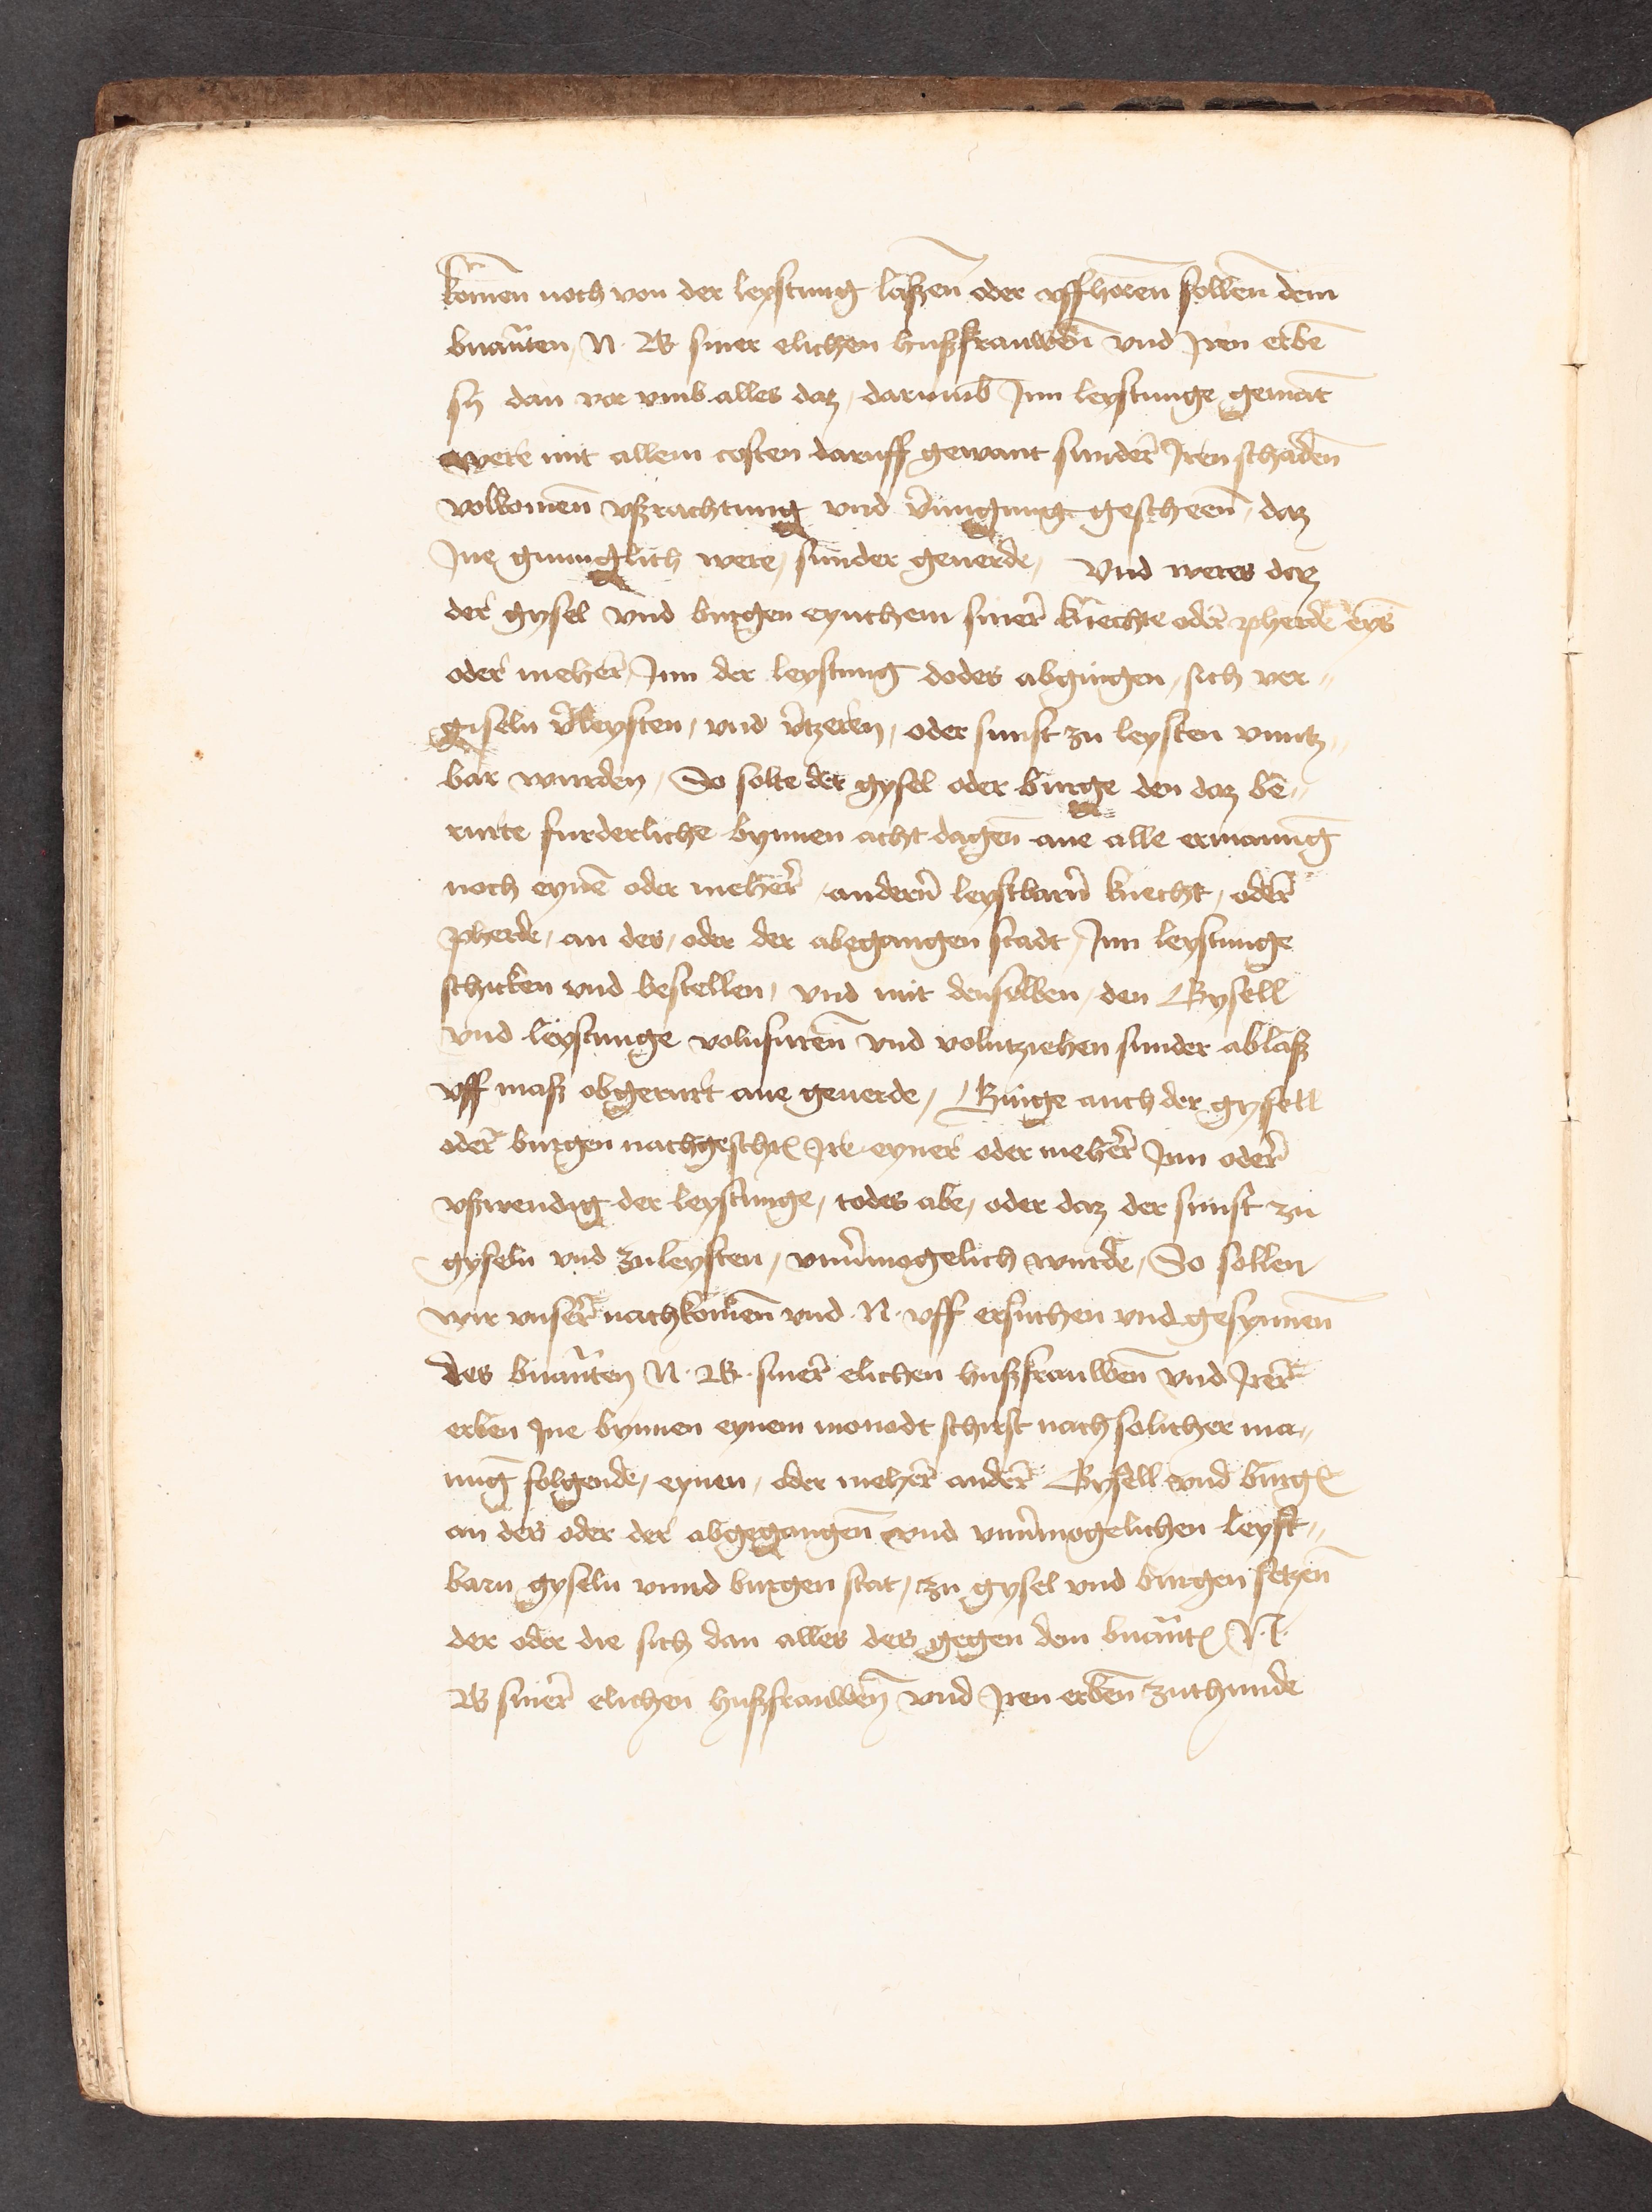 komen noch von der leystung laßzen oder uffhoren sollen dem
bnanten N. W. siner elichen hußfrauwen und Iren erbe
sy dan vor umb alles daz, darumb Inn leystunge gemat
were mit allem costen daruff gewant sunder Iren schaden
volkomen ußrachtung und vnugung gescheen, daz
Ine gnunglich were, sunder geuerde, Und weres daz
der gysel und burgen eynchem siner knechte oder pherde eyns
oder meher, Inn der leystung dodes abgingen, sich ver„
giseln v̉leysten, und v̉tzeren, oder sunst zu leysten unutz„
bar wurden, So solte der gysel oder burge den daz be„
rurte furderliche bynnen acht dagen ane alle ermanung
noch eynē oder meher, andern leystbarn knecht, oder
pherde, an des, oder der abegangen stadt, Inn leystunge
schicken und bestellen, und mit denselben, den Gysell
und leystunge volnfuren und volntziehen sunder ablaß
uff maß obgerurt ane geuerde, Ginge auch der gysell
oder burgen nachgeschr Ire eyner oder meher Inn oder
ußwendig der leystunge, todes abe, oder daz der sunst zu
gyseln und zuleysten, unv̉mogelich wurde, So sollen
wir unser nachkomen und N. uff ersuchen und gesynnen
des bnanten N. W. siner elichen hußfrauwen und Irer
erben Ine bynnen eynem monedt schirst nach solicher ma„
nung folgende, eynen, oder meher ander Gysell und burg
an des oder der abgegangen und unv̉mogelichen leyst„
barn gyseln unnd burgen stat, zu gysel und burgen setzen
der oder die sich dan alles des gegen dem bnant N.
W siner elichen hußfrauwen und Iren erben zuthunde